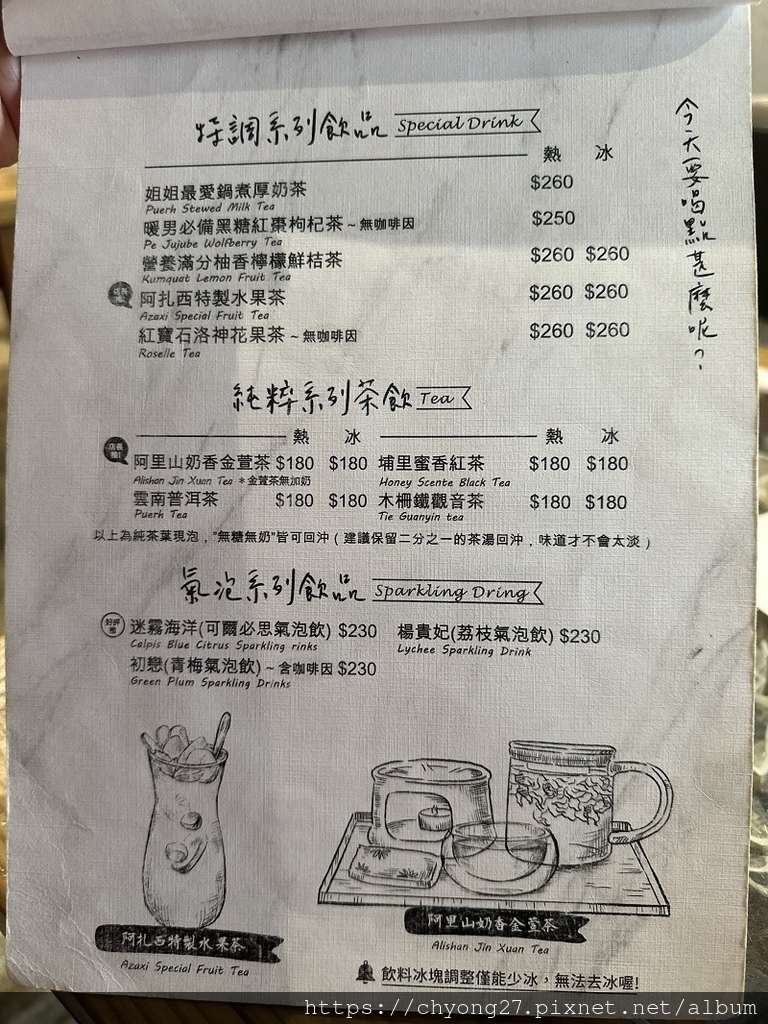 今天要喝點甚麼呢？
特調系列飲品 Special Drink
熱 冰
姐姐最愛鍋煮厚奶茶 $260
Puerh Stewed Milk Tea
暖男必備黑糖紅棗枸杞茶～無咖啡因 $250
Pe Jujube Wolfberry Tea
營養滿分柚香檸檬鮮桔茶 $260 $260
Kumquat Lemon Fruit Tea
店長推! 阿扎西特製水果茶 $260 $260
Azaxi Special Fruit Tea
紅寶石洛神花果茶～無咖啡因 $260 $260
Roselle Tea
純粹系列茶飲 Tea
熱 冰 熱 冰
店長推! 阿里山奶香金萱茶 $180 $180 埔里蜜香紅茶 $180 $180
Alishan Jin Xuan Tea ＊金萱茶無加奶 Honey Scente Black Tea
雲南普洱茶 $180 $180 木柵鐵觀音茶 $180 $180
Puerh Tea Tie Guanyin tea
以上為純茶葉現泡，"無糖無奶"皆可回沖（建議保留二分之一的茶湯回沖，味道才不會太淡）
氣泡系列飲品 Sparkling Dring
好評推 迷霧海洋(可爾必思氣泡飲) $230 楊貴妃(荔枝氣泡飲) $230
Calpis Blue Citrus Sparkling rinks Lychee Sparkling Drink
初戀(青梅氣泡飲)～含咖啡因 $230
Green Plum Sparkling Drinks
阿扎西特製水果茶
Azaxi Special Fruit Tea
阿里山奶香金萱茶
Alishan Jin Xuan Tea
飲料冰塊調整僅能少冰，無法去冰喔!
https://chyong27.pixnet.net/album